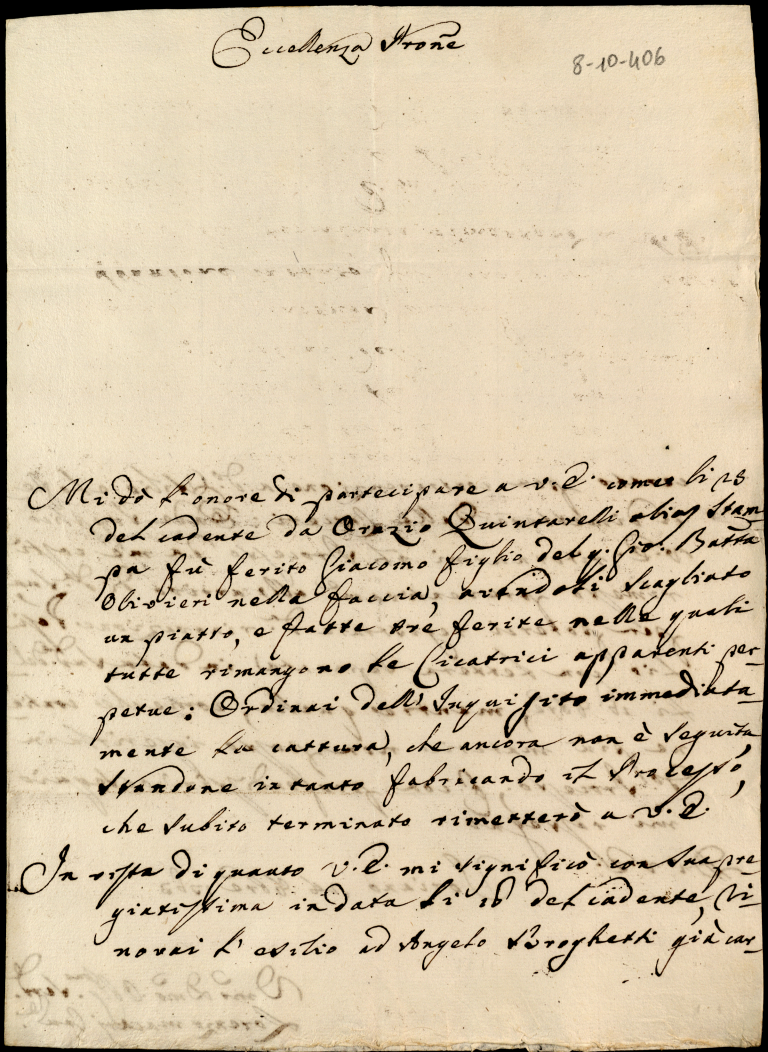 Eccellenza Prone
8-10-406
Mi dò l'onore di partecipare a V.E. come li 23
del cadente da Orazio Quintarelli alias Stam-
pa fù ferito Giacomo figlio del q. Gio: Batta
Olivieri nella faccia, avendoli scagliato
un piatto, e fatte trè ferite nelle quali
tutte rimangono le Cicatrici apparenti per-
petue: Ordinai dell'Inquisito immediata-
mente la cattura, che ancora non è seguita
Standone intanto fabricando il Processo,
che subito terminato rimetterò a V.E.
In vista di quanto V.E. mi significò con sua pre-
giatissima in data li 16 del cadente, Ri-
novai l'esilio ad Angelo Broghetti già car-